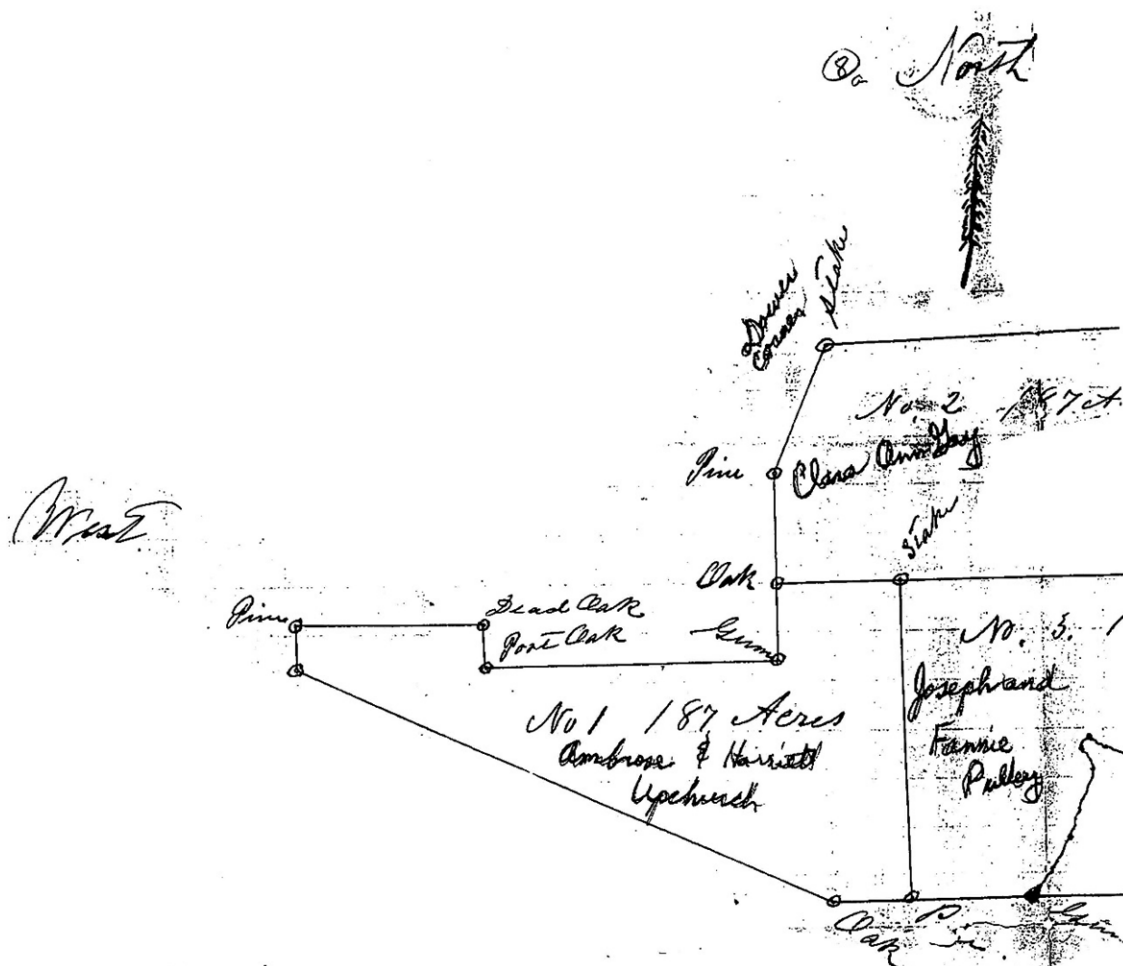 8a North
Dower
Corner
Stake
No. 2 187 A.
Clara Ann Gay
Pine
West
Stake
Oak
Pine
Dead Oak
Post Oak
Gum
No. 3. 1
Joseph and
Fannie
Pulley
No 1 187 Acres
Ambrose & Harriett
Upchurch
Oak
Gum